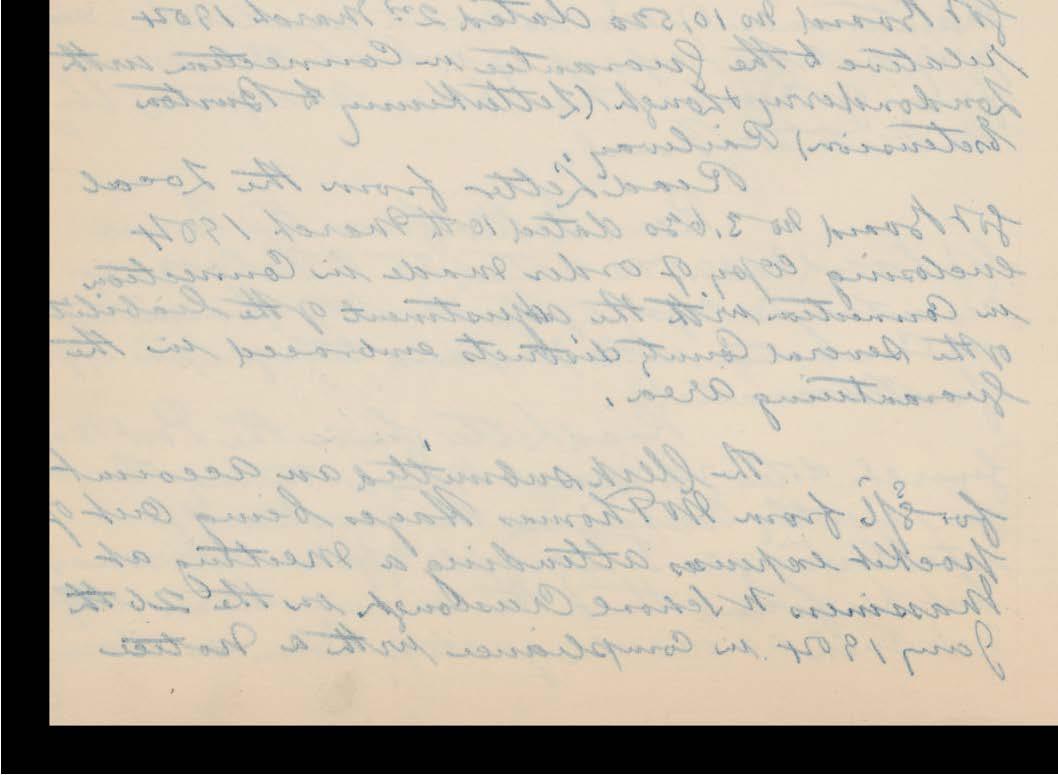 Gt Board No 10,520 dated 2nd March 1904
relative to the Guarantee in Connection with
Londonderry & Lough (Letterkenny to Burton
Extension) Railway,
Read Letter from the Local
Gt Board No 3,620 dated 10th March 1904
enclosing Copy of order made in Connection
in Connection with the adjustment of the liability
of the several County districts embraced in the
Guaranteeing area.
The Clerk submitted an account
for from Mr Thomas Hayes being Out of
pocket expenses attending a Meeting at
N. School on the 26th
Jany 1904 in Compliance with a Notice